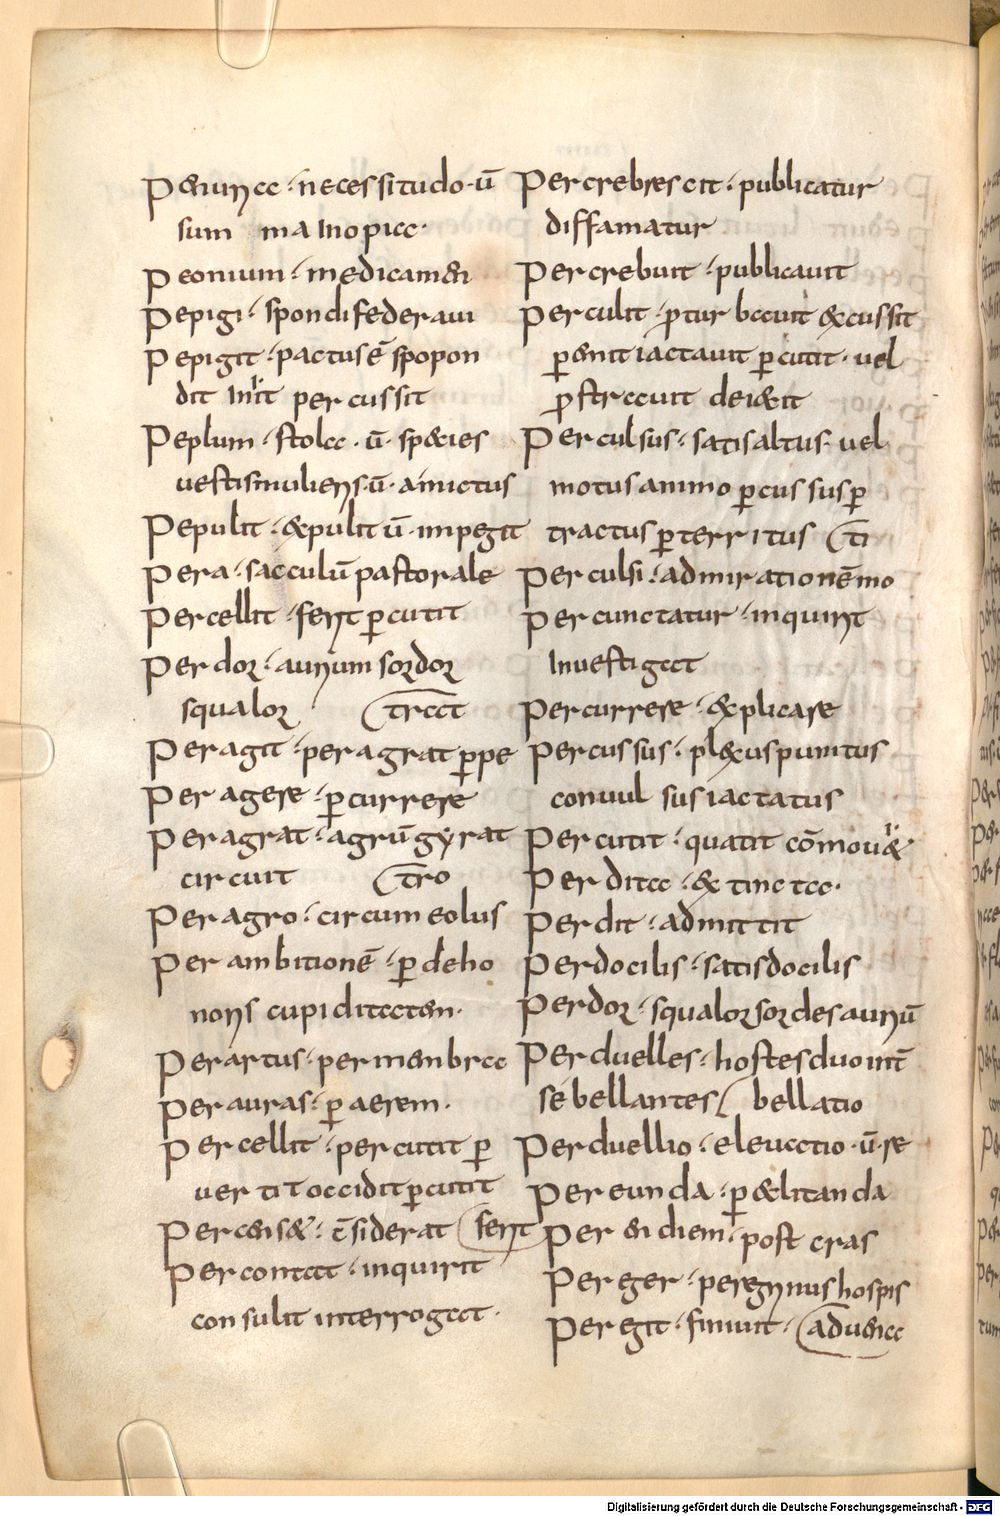 Penuria · necessitudo · ū
sum ma Inopia ·
Peonium · medicamen
Pepigi · spondi federaui
Pepigit · pactus ē spopon
dit Inīt percussit
Peplum · stola · ū · species
uestis muliens · ū · amictus
Pepulit · expulit ū · impegit
Pera · sacculū pastorale
Percellit · ferit ꝑcutit
Perdor · aurium sordor
squalor
Peragit · peragrat ꝑpe
(trat
Peragere · ꝑcurrere
Peragrat · agrū gyrat
circuit
Peragro · circumeolus
(tro
Perambitionē · ꝑ deho
noris cupiditatem ·
Perartus · per membra
Perauras · ꝑ aerem ·
Percellit · percutit ꝑ
uertit occidit ꝑcutit
Percenset · c̄siderat (ferit
Percontat · inquirit
consulit interrogat ·
Percrebrescit · publicatur
diffamatur
Percrebuit · publicauit
Perculit · ꝓturbauit excussit
ꝑemit iactauit ꝑcutit · uel
ꝓstrauit deiecit
Perculsus · satis altus uel
motus animo ꝑcussus ꝑ
tractus ꝑterritus
Perculsi · admirationē mo
(ti
Percunctatur · inquirit
Inuestigat
Percurrere · explicare
Percussus · plexus punitus
conuulsus iactatus
Percutit · quatit cōmouet
Perdita · & tincta ·
Perdit · admittit
Perdocilis · satis docilis
Perdor · squalor sordes auriū
Perduelles · hostes duo int̄
sé bellantes
Perduellio · eleuatio · ū · re
(bellatio
Pereunda · ꝑ& litanda
Perendiem · post cras
Pereger · peregrinus hospis
Peregit · finiuit · (aduena